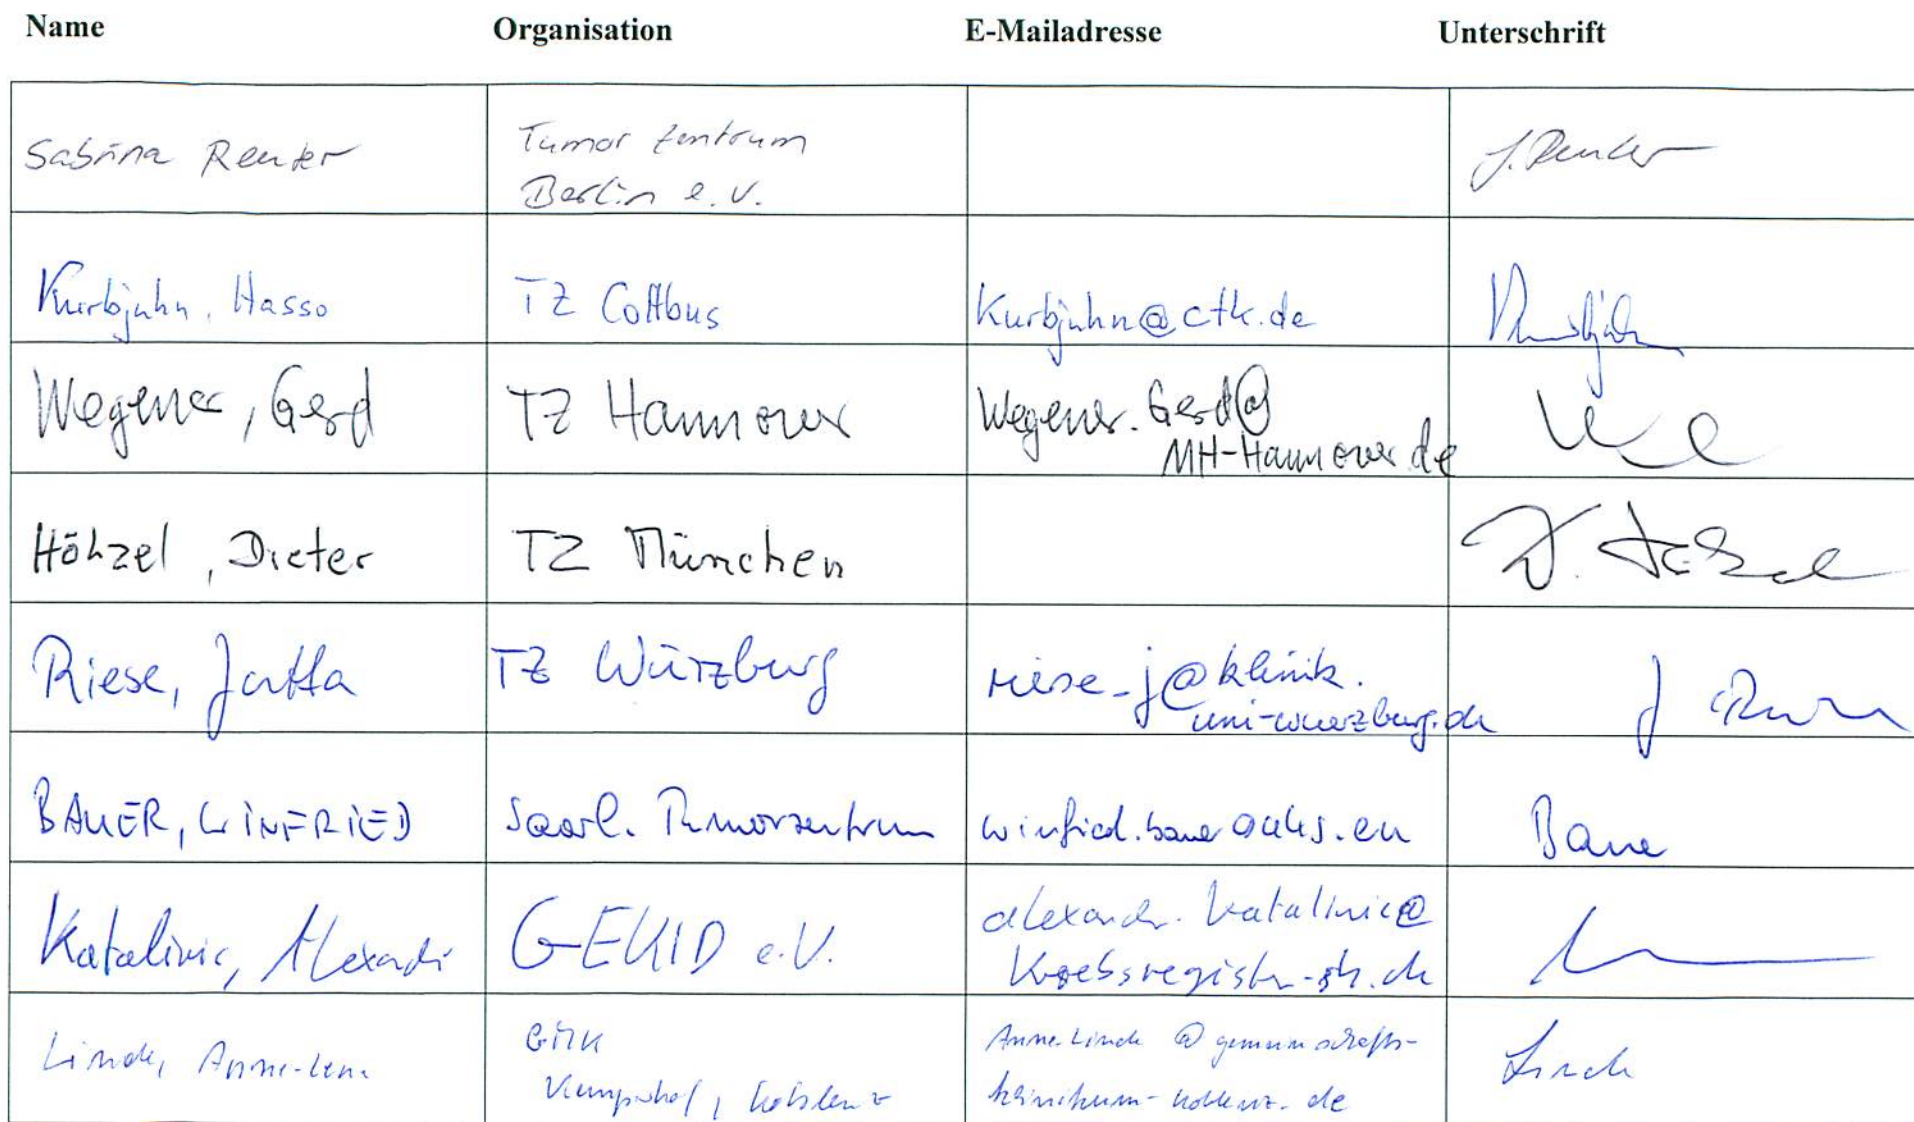 Name Organisation E-Mailadresse Unterschrift
Sabrina Reuter Tumor Zentrum S. Reuter
Berlin e.V.
Kurbjuhn, Hasso TZ Cottbus Kurbjuhn@ctk.de Kurbjuhn
Wegener, Gerd TZ Hannover Wegener.Gerd@
MH-Hannover.de
Hölzel, Dieter TZ München D. Hölzel
Riese, Jutta TZ Würzburg riese_j@klinik.
uni-wuerzburg.de
BAUER, WINFRIED Saarl. Tumorzentrum winfried.bauer@uks.eu Bauer
Katalinic, Alexander GEKID e.V. alexander.katalinic@
krebsregister-sh.de
Linde, Anne-Lena GMK Anne.Linde@gemeinschafts-
Kemperhof, Koblenz klinikum-koblenz.de Linde